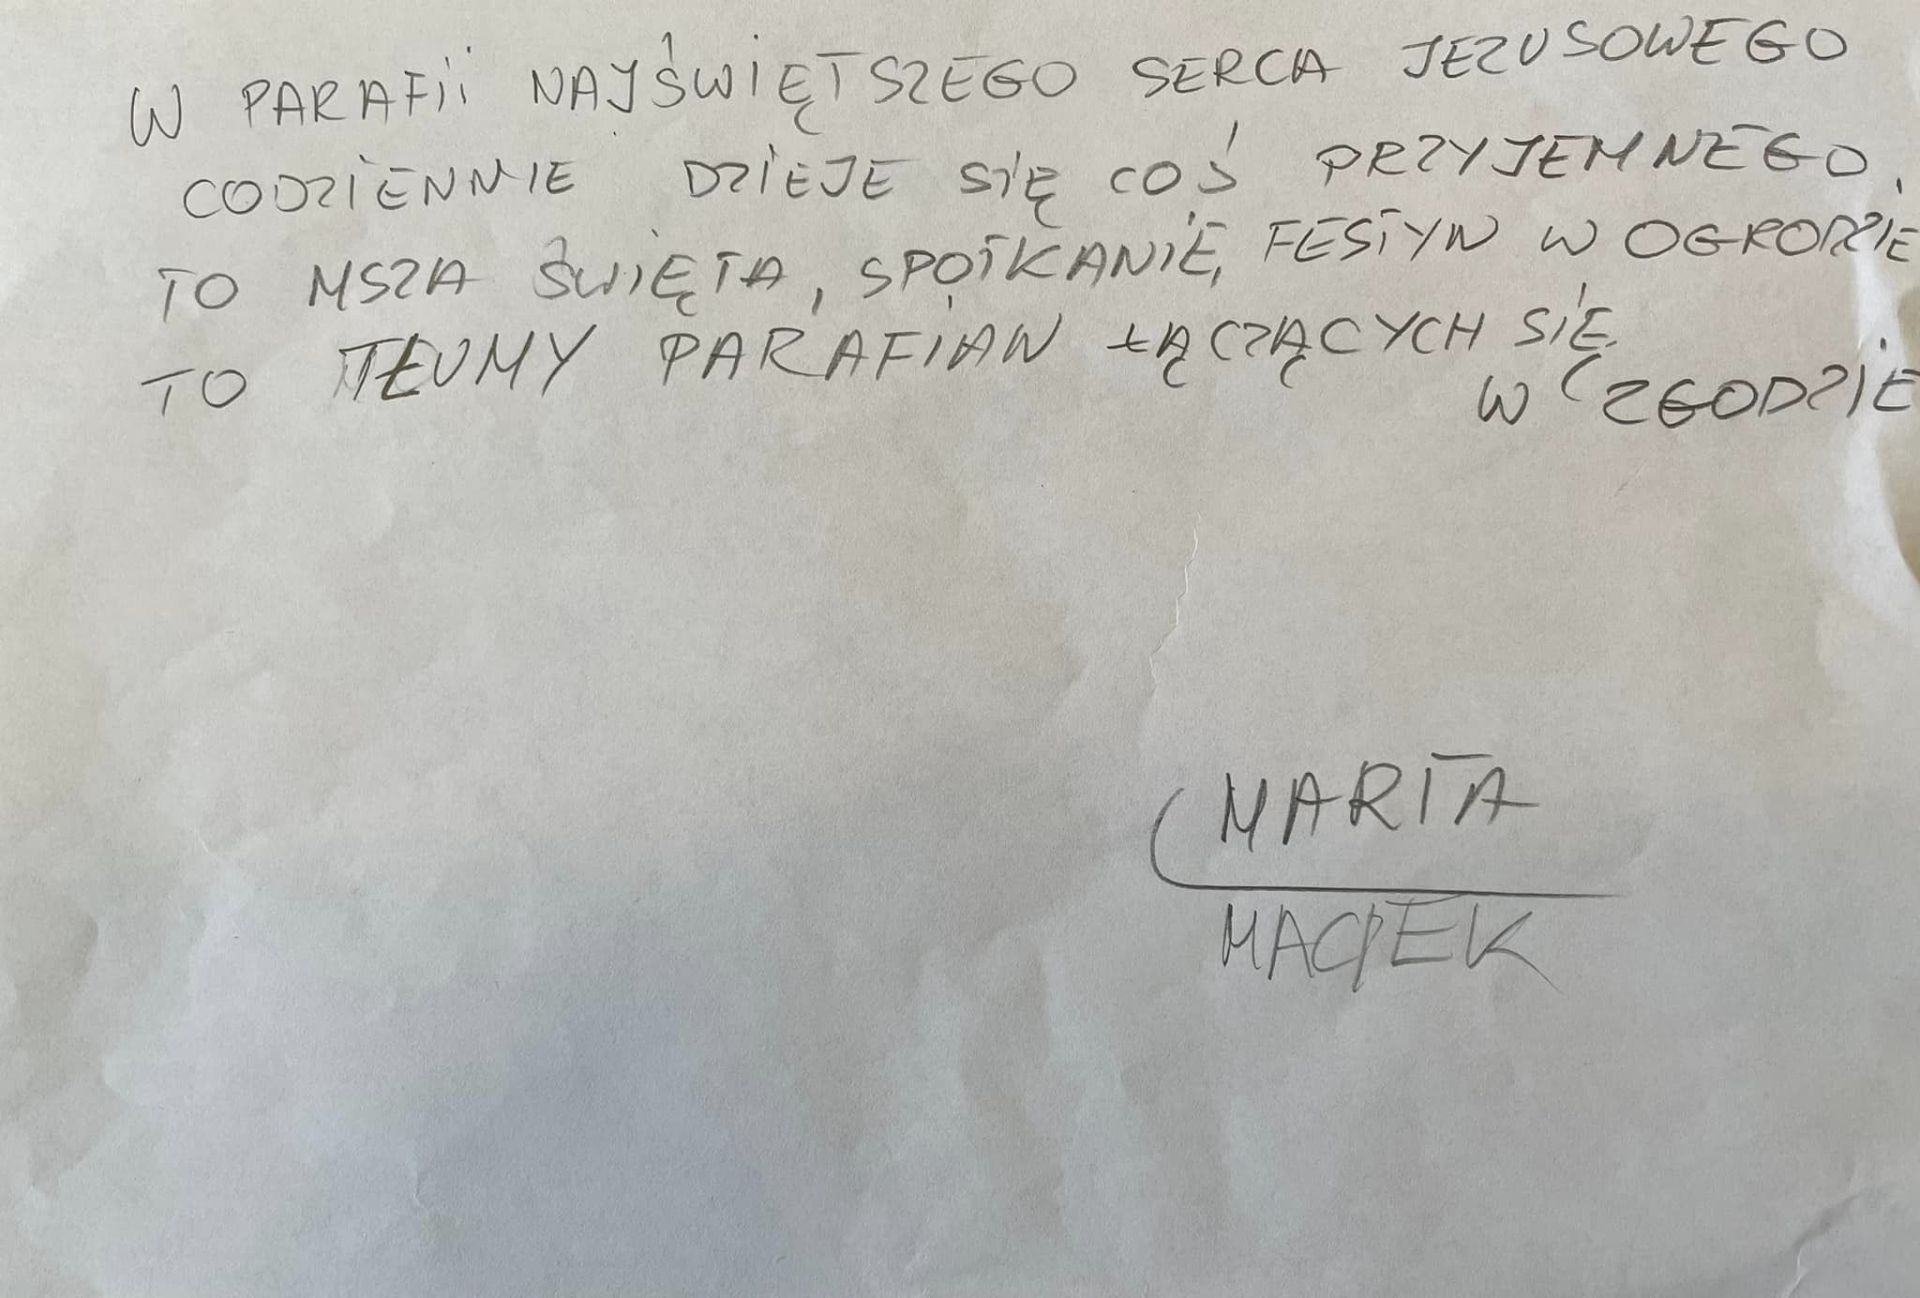 W PARAFII NAJŚWIĘTSZEGO SERCA JEZUSOWEGO
CODZIENNIE DZIEJE SIĘ COŚ PRZYJEMNEGO.
TO MSZA ŚWIĘTA, SPOTKANIE, FESTYN W OGRODZIE
TO TŁUMY PARAFIAN ŁĄCZĄCYCH SIĘ
W ZGODZIE
MARTA
MACIEK